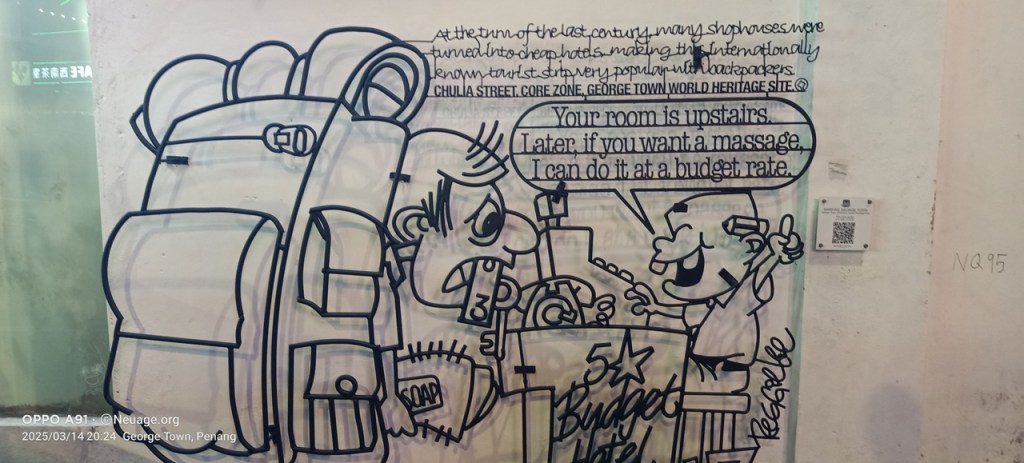 At the turn of the last century, many shophouses were
turned into cheap hotels making this Internationally
known tourist strip very popular with backpackers.
CHULIA STREET, CORE ZONE, GEORGE TOWN WORLD HERITAGE SITE.
Your room is upstairs.
Later, if you want a massage,
I can do it at a budget rate.
3
5
SOAP
5
Budget
Hotel
NQ95
OPPO A91 · ©Neuage.org
2025/03/14 20:24 George Town, Penang